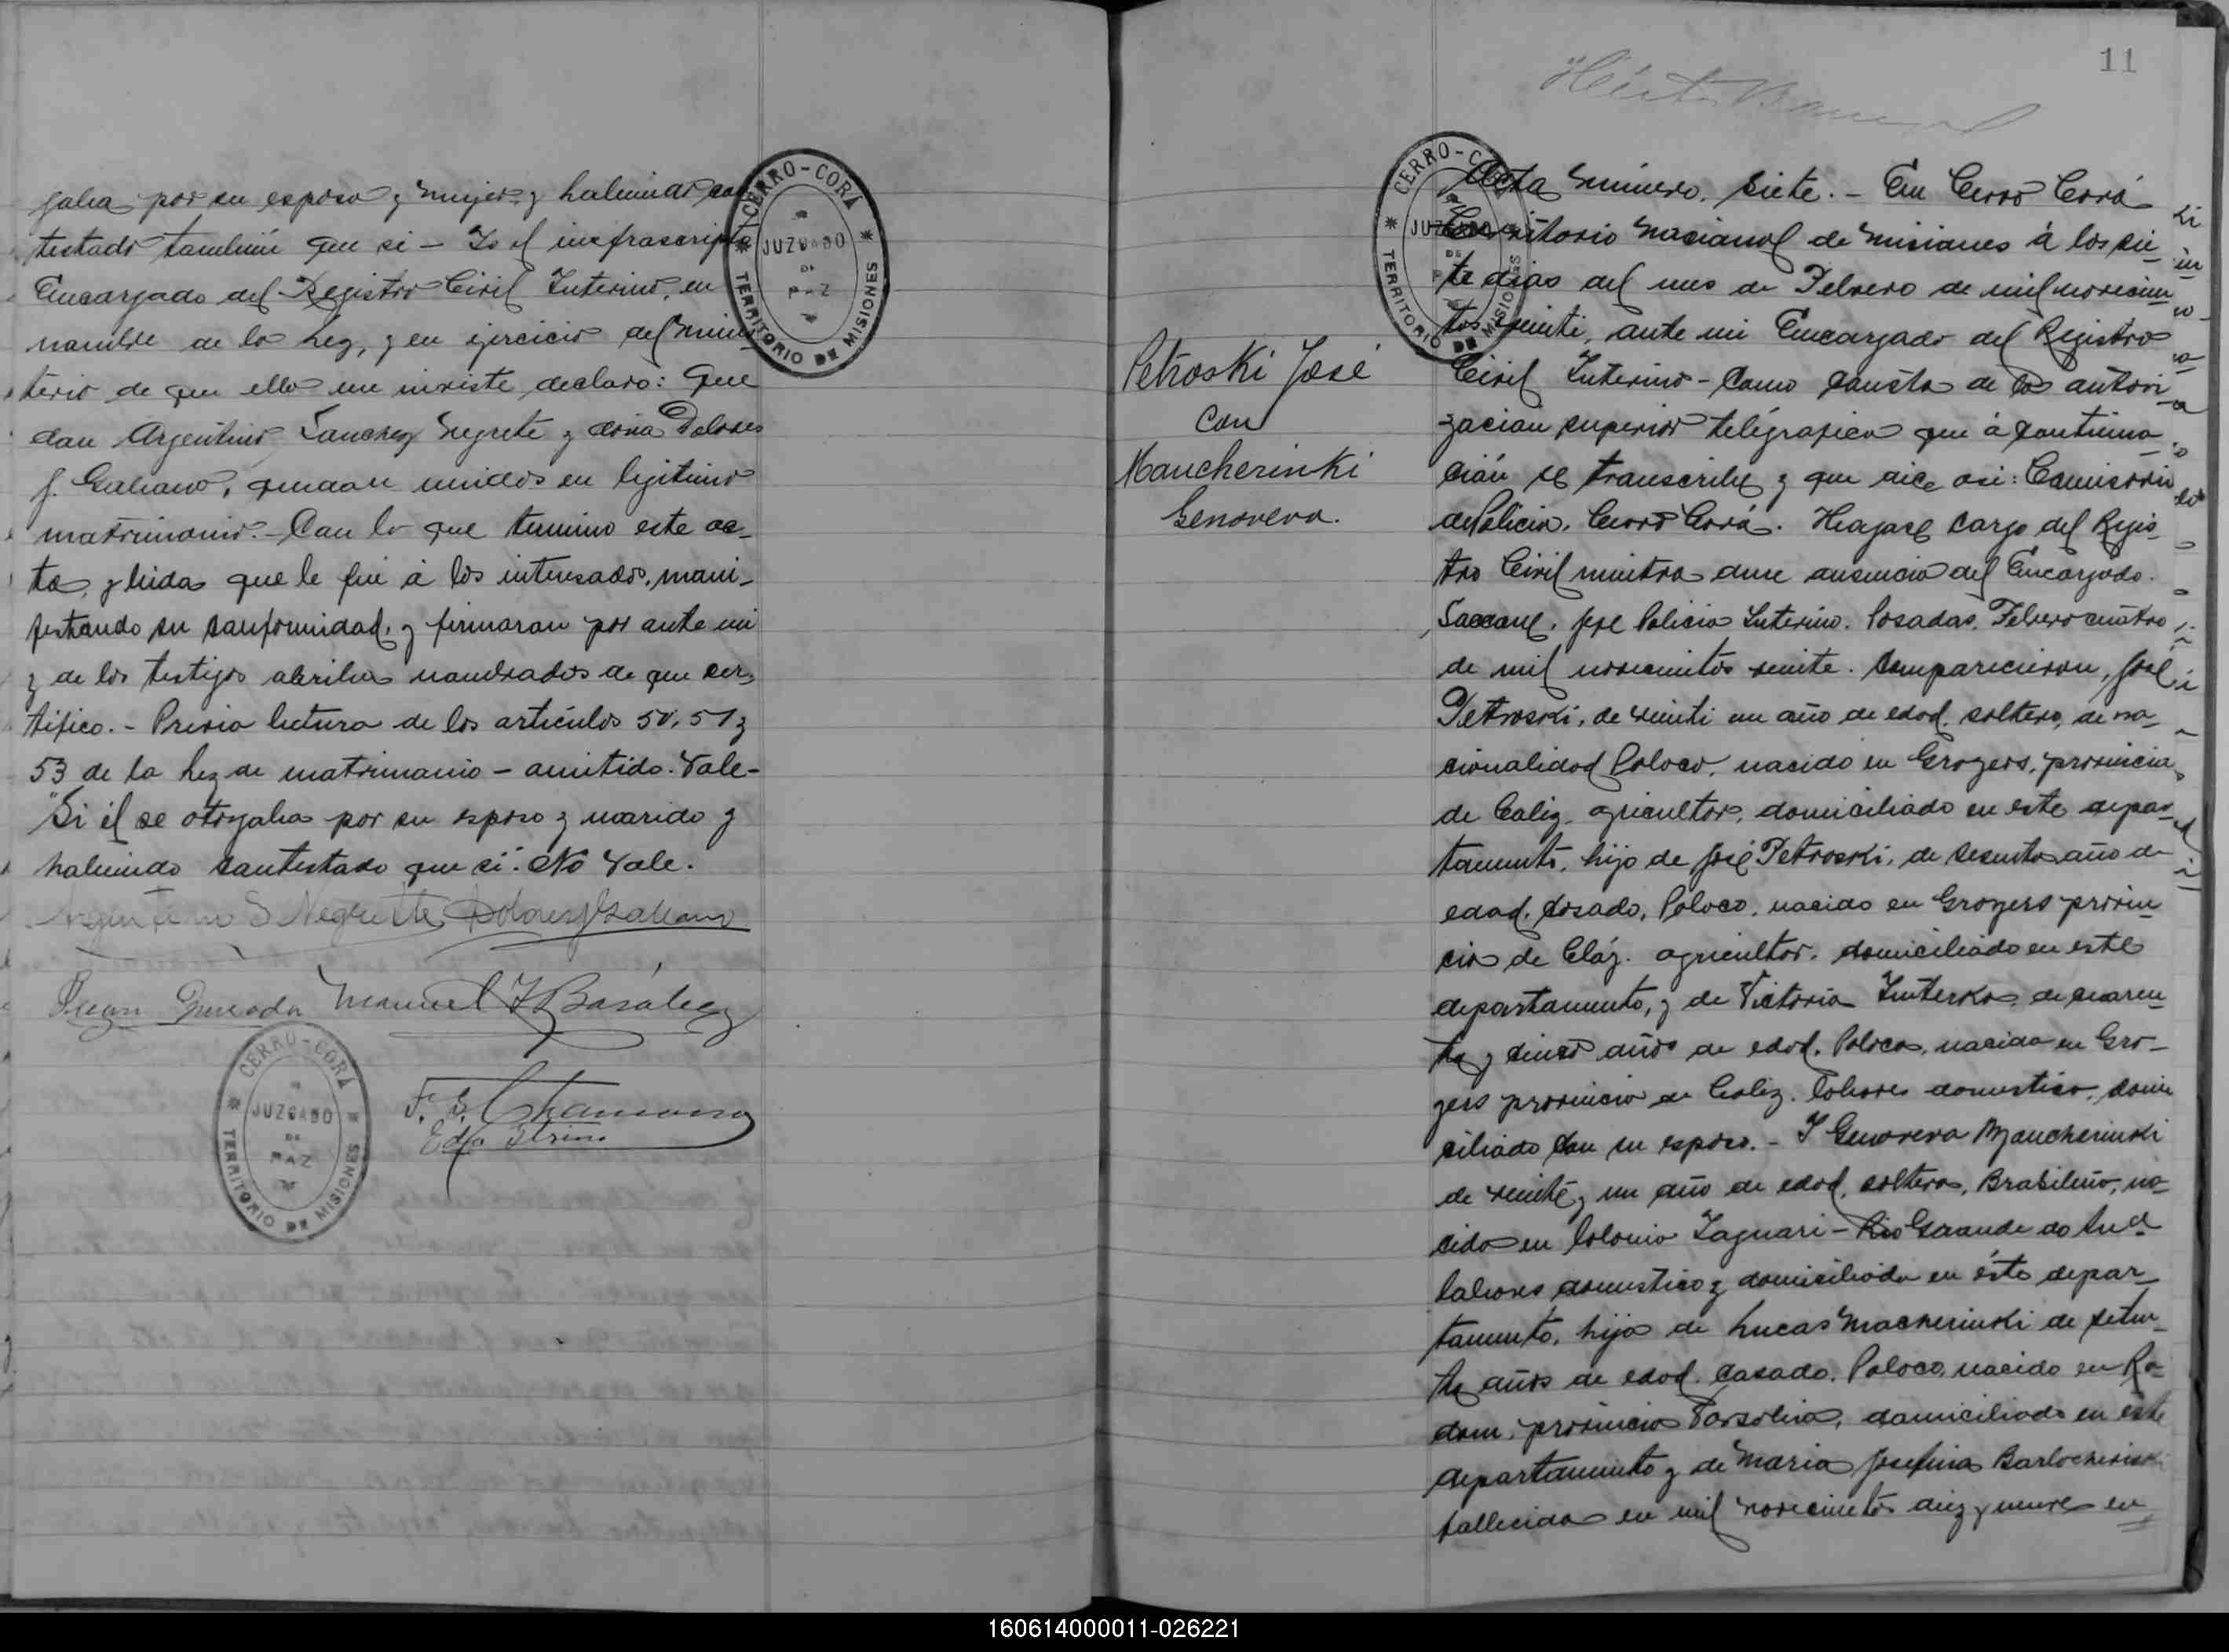 gaba por su esposo y mujer, y habiendo con
testado también que si — Yo el infrascripto
Encargado del Registro Civil Interino, en
nombre de la Ley, y en ejercicio del minis
terio de que ella me inviste declaro: Que
don Argentino Sanchez Negrete y doña Dolores
J. Galiano, quedan unidos en legitimo
matrimonio. - Con lo que termino este ac_
ta, y leida que le fué á los interesados, mani_
festando su conformidad, y firmaron por ante mi
y de los testigos arriba nombrados de que cer_
tifico. - Previa lectura de los artículos 50, 51 y
53 de la ley de matrimonio - omitido. Vale -
"Si él se otorgaba por su esposo y marido y
habiendo contestado que si". No Vale.
Argentino S Negrette Dolores J Galiano
Juan Quesada Manuel Y Basáles
F. S. Chamorro
Edo Interino
CERRO-CORÁ
JUZGADO
DE
PAZ
TERRITORIO DE MISIONES
CERRO-CORÁ
JUZGADO
DE
PAZ
TERRITORIO DE MISIONES
11
Petroski José
con
Mancherinki
Genoveva.
CERRO-CORÁ
JUZGADO
DE
PAZ
TERRITORIO DE MISIONES
Acta número, siete. - En Cerro Corá
Territorio Nacional de Misiones á los sie_
te dias del mes de Febrero de mil novecien
tos veinte, ante mi Encargado del Registro
Civil Interino - Como consta de la autori
zacion superior telégrafica que á continua_
ción se transcribe y que dice asi: Comisario
de Policia. Cerro Corá. Hagase cargo del Regis_
tro Civil mientra dure ausencia del Encargado.
Saccone, Jefe Policia Interino. Posadas, Febrero cuatro
de mil novecientos veinte. Comparecieron, José
Petroski, de veinti un año de edad, soltero, de na_
cionalidad Polaco, nacido en Grogers, provincia
de Caliz, agricultor, domiciliado en este depar_
tamento, hijo de José Petroski, de sesenta año de
edad, casado, Polaco, nacido en Grogers provin_
cia de Cláz. agricultor, domiciliado en este
departamento, y de Victoria de cuaren_
ta y cinco años de edad, Polaca, nacida en Gro_
gers provincia de Caliz. labores domestico, domi
ciliado con su esposo. - Y Genoveva Mancherinski
de veinte y un año de edad, soltera, Brasileña, na_
cida en Colonia Jaguari - Rio Grande do Sud
labores domestico y domiciliada en éste depar_
tamento, hija de Lucas Macherinski de seten_
ta años de edad, casado, Polaco, nacido en Ra_
dom, provincia Varsolia, domiciliado en este
departamento y de Maria Josefina Barlocheriski
fallecida en mil novecientos diez y nueve en
160614000011-026221